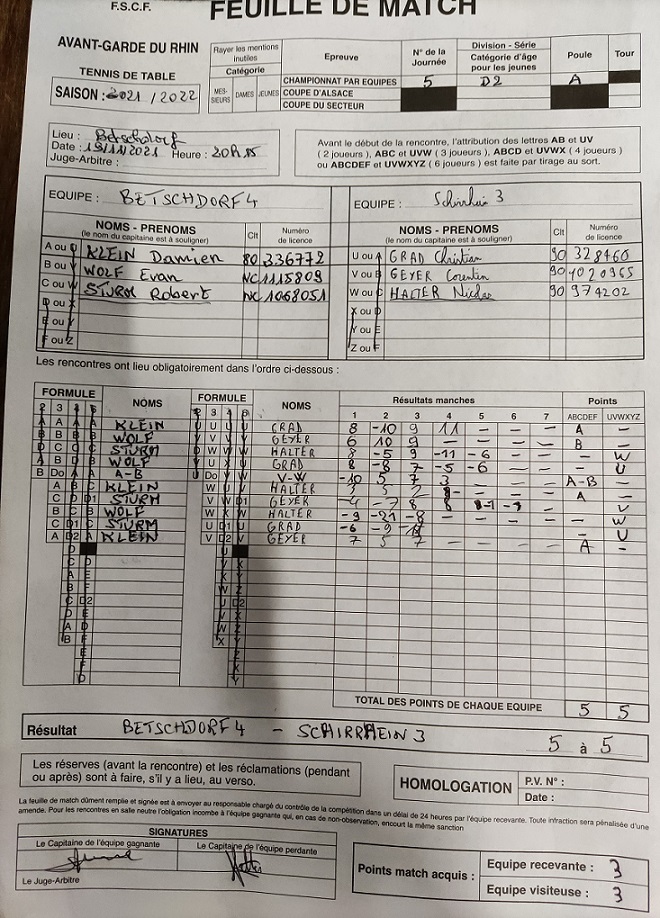 F.S.C.F.
FEUILLE DE MATCH
AVANT-GARDE DU RHIN
TENNIS DE TABLE
SAISON : 2021 / 2022
Rayer les mentions inutiles
Catégorie
MES-SIEURS DAMES JEUNES
Epreuve
CHAMPIONNAT PAR EQUIPES
COUPE D'ALSACE
COUPE DU SECTEUR
N° de la Journée
5
Division - Série
Catégorie d'âge pour les jeunes
D2
Poule
A
Tour
Lieu : Betschdorf
Date : 19/11/2021 Heure : 20h15
Juge-Arbitre :
Avant le début de la rencontre, l'attribution des lettres AB et UV
( 2 joueurs ), ABC et UVW ( 3 joueurs ), ABCD et UVWX ( 4 joueurs )
ou ABCDEF et UVWXYZ ( 6 joueurs ) est faite par tirage au sort.
EQUIPE : BETSCHDORF 4
NOMS - PRENOMS
(le nom du capitaine est à souligner)
Clt
Numéro de licence
A ou U KLEIN Damien 80 336772
B ou V WOLF Evan NC 1115809
C ou W STURM Robert NC 1068051
D ou X
E ou Y
F ou Z
EQUIPE : Schirrhein 3
NOMS - PRENOMS
(le nom du capitaine est à souligner)
Clt
Numéro de licence
U ou A GRAD Christian 90 328460
V ou B GEYER Corentin 90 1020965
W ou C HALTER Nicolas 90 974202
X ou D
Y ou E
Z ou F
Les rencontres ont lieu obligatoirement dans l'ordre ci-dessous :
FORMULE NOMS FORMULE NOMS Résultats manches Points
1 2 3 4 5 6 7 ABCDEF UVWXYZ
KLEIN GRAD 8 -10 9 11 - - - A -
WOLF GEYER 6 10 9 - - - - B -
STURM HALTER 8 -5 9 -11 -6 - W
WOLF GRAD 8 -8 7 -5 -6 - U
A-B V-W -10 5 7 3 A-B -
KLEIN HALTER 3 5 2 - A -
STURM GEYER 4 -7 8 - V
WOLF HALTER -9 -21 -8 - - - - - W
STURM GRAD -6 -9 - U
KLEIN GEYER 7 5 7 - - - - A -
TOTAL DES POINTS DE CHAQUE EQUIPE 5 5
Résultat BETSCHDORF 4 - SCHIRRHEIN 3 5 à 5
Les réserves (avant la rencontre) et les réclamations (pendant
ou après) sont à faire, s'il y a lieu, au verso.
HOMOLOGATION
P.V. N° :
Date :
La feuille de match dûment remplie et signée est à envoyer au responsable chargé du contrôle de la compétition dans un délai de 24 heures par l'équipe recevante. Toute infraction sera pénalisée d'une
amende. Pour les rencontres en salle neutre l'obligation incombe à l'équipe gagnante qui, en cas de non-observation, encourt la même sanction
SIGNATURES
Le Capitaine de l'équipe gagnante
Le Capitaine de l'équipe perdante
Le Juge-Arbitre
Points match acquis :
Equipe recevante : 3
Equipe visiteuse : 3